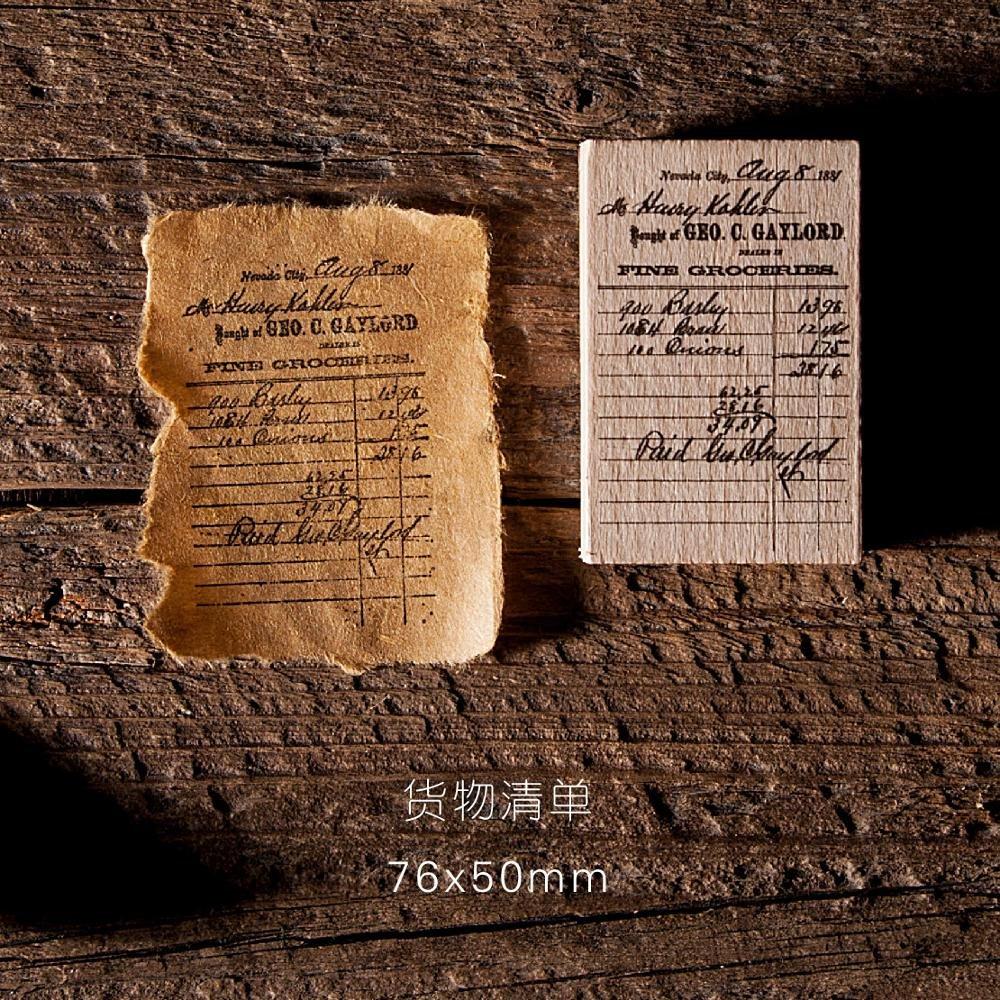 Nevada City, Aug 8 188
M Henry Kohler
Bought of GEO. C. GAYLORD
DEALER IN
FINE GROCERIES.
900 Barley 1396
1084 Bran 12
100 Onions 175
2816
62.25
28.16
34.09
Paid Geo. C. Gaylord
Nevada City, Aug 8 188
M Henry Kohler
Bought of GEO. C. GAYLORD
DEALER IN
FINE GROCERIES.
900 Barley 1396
1084 Bran 12
100 Onions 175
2816
62.25
28.16
34.09
Paid Geo. C. Gaylord
货物清单
76x50mm